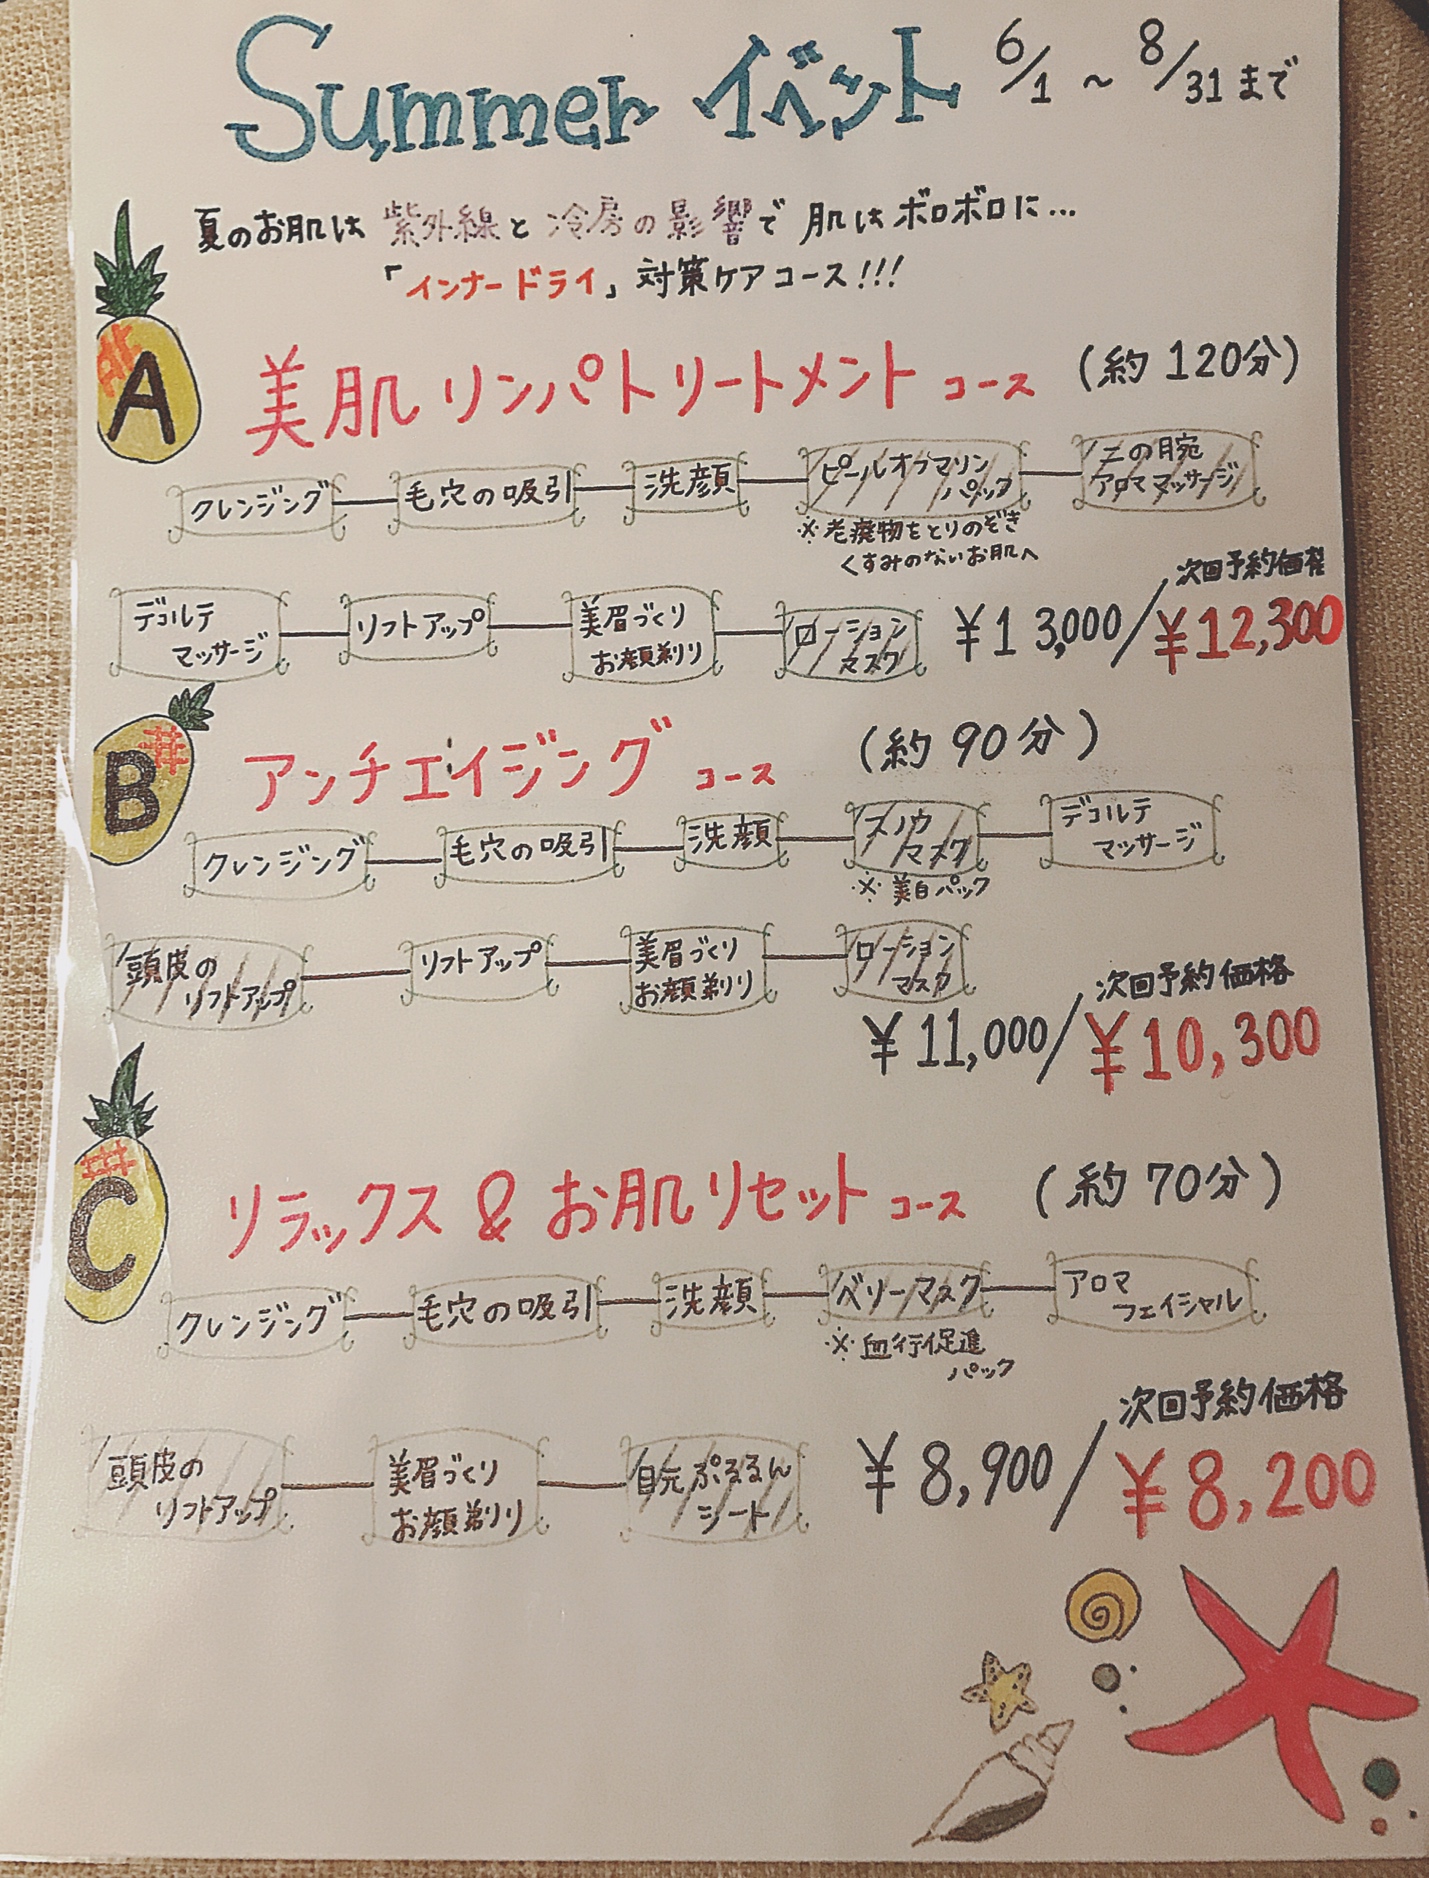 Summer イベント 6/1 ～ 8/31 まで
夏のお肌は 紫外線と 冷房の影響で 肌はボロボロに…
「インナードライ」対策ケアコース!!!
A 美肌リンパトリートメント コース (約 120分)
クレンジング 毛穴の吸引 洗顔 ピールオフマリン 二の腕
パック アロママッサージ
※老廃物をとりのぞき
くすみのないお肌へ
次回予約価格
デコルテ リフトアップ 美眉づくり ローション ¥13,000/¥12,300
マッサージ お顔剃り マスク
B アンチエイジング コース (約 90分)
クレンジング 毛穴の吸引 洗顔 スノウ デコルテ
マスク マッサージ
※美白パック
頭皮の リフトアップ 美眉づくり ローション
リフトアップ お顔剃り マスク
次回予約価格
¥11,000/¥10,300
C リラックス & お肌リセット コース (約 70分)
クレンジング 毛穴の吸引 洗顔 ベリーマスク アロマ
フェイシャル
※血行促進
パック
次回予約価格
頭皮の 美眉づくり 目元ぷるるん ¥8,900/¥8,200
リフトアップ お顔剃り シート